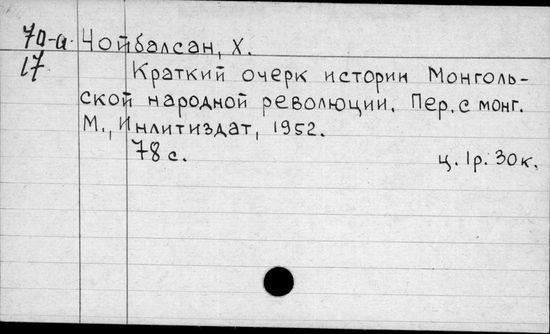 70-а Чойбалсан, Х.
17 Краткий очерк истории Монголь-
ской народной революции. Пер. с монг.
М., Инлитиздат, 1952.
78 с. ц. 1р. 30к.